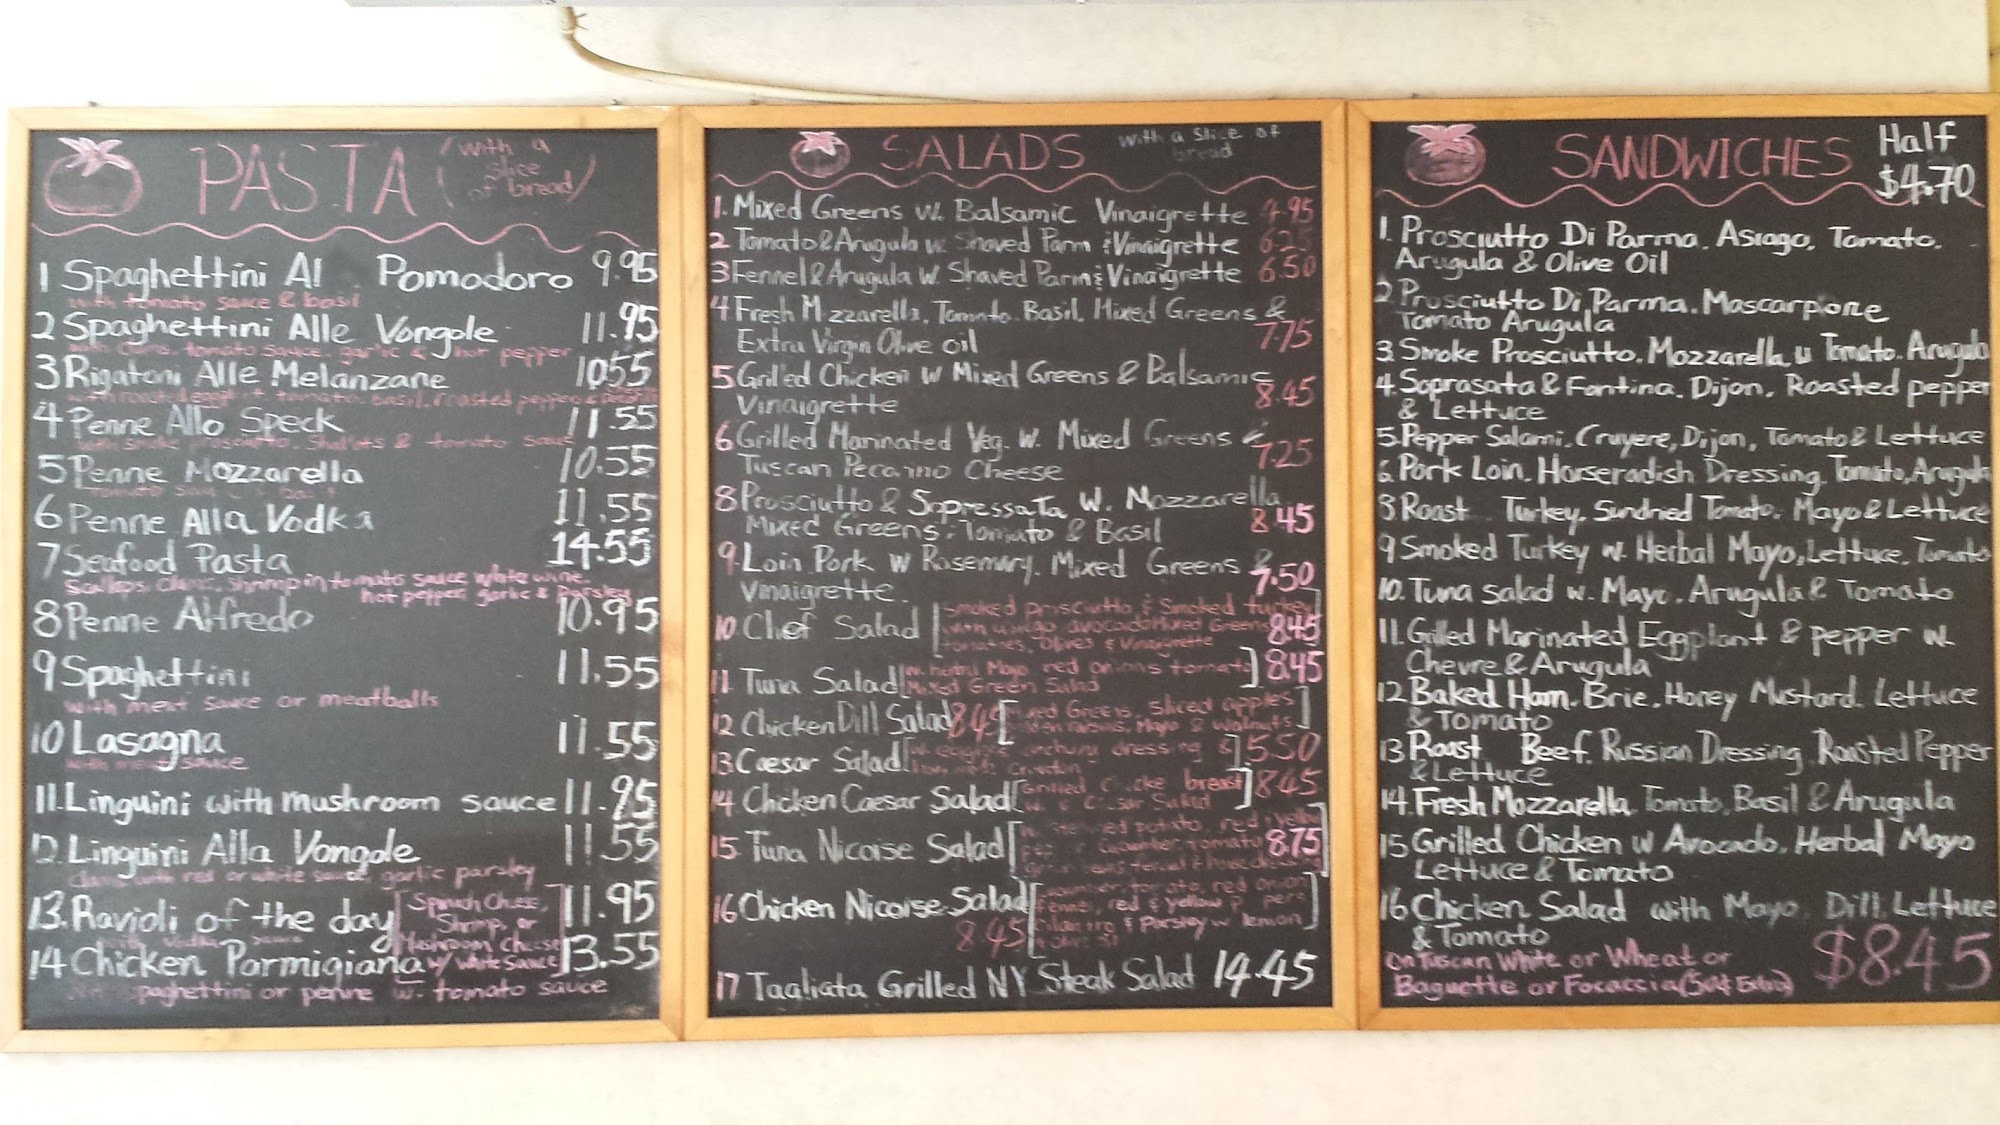 PASTA (with a
slice
of bread)
1 Spaghettini Al Pomodoro 9.95
with tomato sauce & basil
2 Spaghettini Alle Vongole 11.95
tomato sauce, garlic & hot pepper
3 Rigatoni Alle Melanzane 10.55
with roasted tomato, basil, roasted peppers
4 Penne Allo Speck 11.55
with smoke prosciutto, shallots & tomato sauce
5 Penne Mozzarella 10.55
tomato sauce
6 Penne Alla Vodka 11.55
7 Seafood Pasta 14.55
Scallops, clams, shrimp in tomato sauce white wine,
hot pepper, garlic & parsley
8 Penne Alfredo 10.95
9 Spaghettini 11.55
with meat sauce or meatballs
10 Lasagna 11.55
with meat sauce
11. Linguini with mushroom sauce 11.95
12. Linguini Alla Vongole 11.55
clams with red or white sauce, garlic parsley
13. Ravioli of the day [Spinach Cheese, 11.95
Shrimp, or
Mushroom Cheese
14 Chicken Parmigiana w/ white sauce] 13.55
spaghettini or penne w. tomato sauce
SALADS with a slice of
bread
1. Mixed Greens w. Balsamic Vinaigrette 4.95
2 Tomato & Arugula w. Shaved Parm & Vinaigrette 6.25
3 Fennel & Arugula w. Shaved Parm & Vinaigrette 6.50
4 Fresh Mozzarella, Tomato. Basil, Mixed Greens &
Extra Virgin Olive oil 7.75
5 Grilled Chicken w Mixed Greens & Balsamic
Vinaigrette 8.45
6 Grilled Marinated Veg. w. Mixed Greens &
Tuscan Pecarino Cheese 7.25
8 Prosciutto & Sopressata W. Mozzarella
Mixed Greens, Tomato & Basil 8.45
9. Loin Pork w Rosemary, Mixed Greens &
Vinaigrette. 7.50
10. Chef Salad [Smoked prisciutto, & Smoked turkey
avocado Mixed Greens 8.45
tomatoes, Olives & Vinaigrette
11. Tuna Salad [w. Herbal Mayo red onions tomato] 8.45
Mixed Green Salad
12 Chicken Dill Salad 8.45 [Mixed Greens, sliced apples
Mayo & walnuts]
13. Caesar Salad [anchovy dressing &] 5.50
14 Chicken Caesar Salad [Grilled breast] 8.45
15. Tuna Nicoise Salad [potato, red & yellow
cucumber, tomato 8.75
16 Chicken Nicoise Salad [cucumber, tomato, red onion
8.45 fennel, red & yellow
& Parsley w lemon]
17 Tagliata Grilled NY Steak Salad 14.45
SANDWICHES Half
$4.70
1. Prosciutto Di Parma. Asiago, Tomato,
Arugula & Olive Oil
2 Prosciutto Di Parma. Mascarpione
Tomato Arugula
3. Smoke Prosciutto. Mozzarella, Tomato. Arugula
4. Soprasata & Fontina. Dijon, Roasted pepper
& Lettuce
5. Pepper Salami. Cruyere, Dijon, Tomato & Lettuce
6. Pork Loin. Horseradish Dressing. Tomato, Arugula
8 Roast Turkey. Sundried Tomato. Mayo & Lettuce
9 Smoked Turkey w. Herbal Mayo, Lettuce, Tomato
10. Tuna salad w. Mayo. Arugula & Tomato
11. Grilled Marinated Eggplant & pepper w
Chevre & Arugula
12 Baked Ham. Brie. Honey Mustard. Lettuce
& Tomato
13 Roast Beef. Russian Dressing. Roasted Pepper
& Lettuce
14. Fresh Mozzarella Tomato, Basil & Arugula
15 Grilled Chicken w Avocado. Herbal Mayo
Lettuce & Tomato
16 Chicken Salad with Mayo, Dill. Lettuce
& Tomato
On Tuscan White or Wheat or $8.45
Baguette or Focaccia (50¢ Extra)